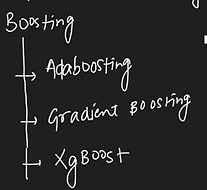 Boosting
Adaboosting
Gradient Boosting
XgBoost